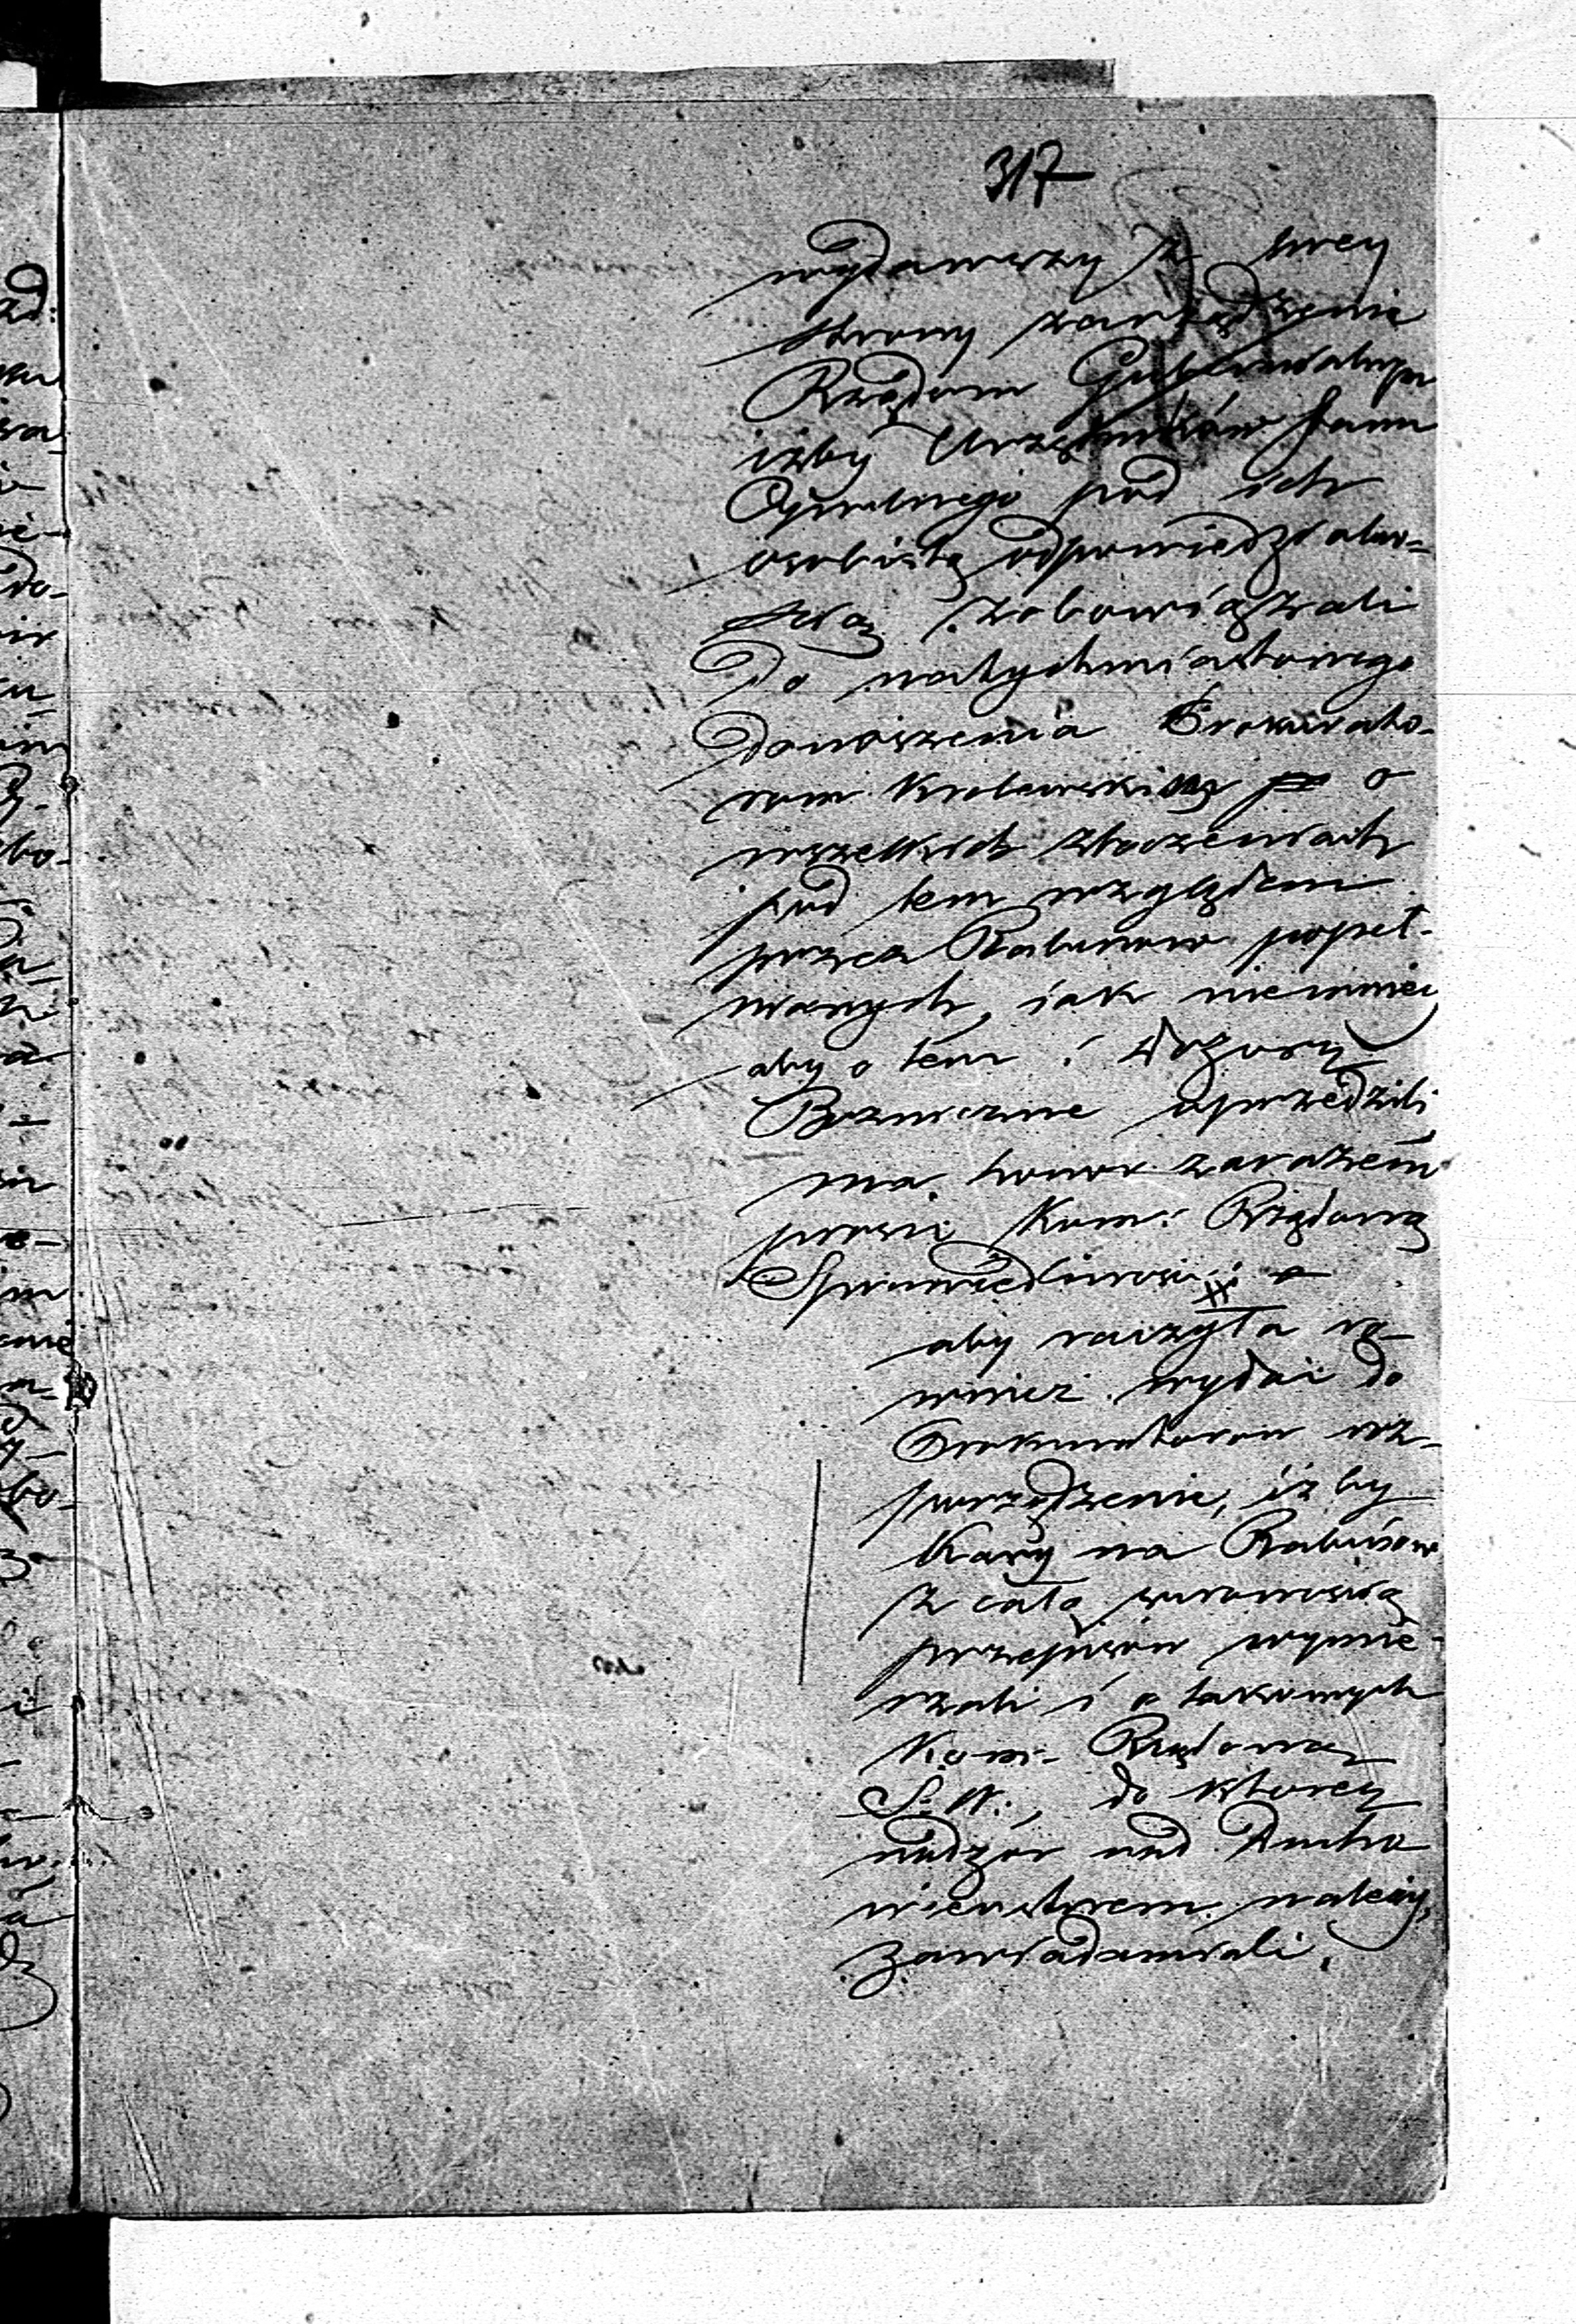 317
wydawszy z swey
strony zarządzenie
Rządom Gubernialnym
iżby Urzędników Stanu
Cywilnego pod ich
osobistą odpowiedzialno-
ścią zobowiązali
do natychmiastowego
donoszenia Prokurato-
rom Królewskim o
wszelkich zboczeniach
pod tem względem
przez Rabinow popeł-
nianych, iak niemniej
aby o tem i Dozory
Bożniczne uprzedzili
ma honor zarazem
prosić Kom: Rządową
Sprawiedliwości
aby raczyła ró-
wnież wydać do
Prokuratorow roz-
porządzenie, iżby
Kary na Rabinow
z całą surowością
przepisów wymie-
rzali i o takowych
Kom. Rządową
S. W., do ktorey
nadzór nad Ducho
wieństwem należy,
zawiadamiali.